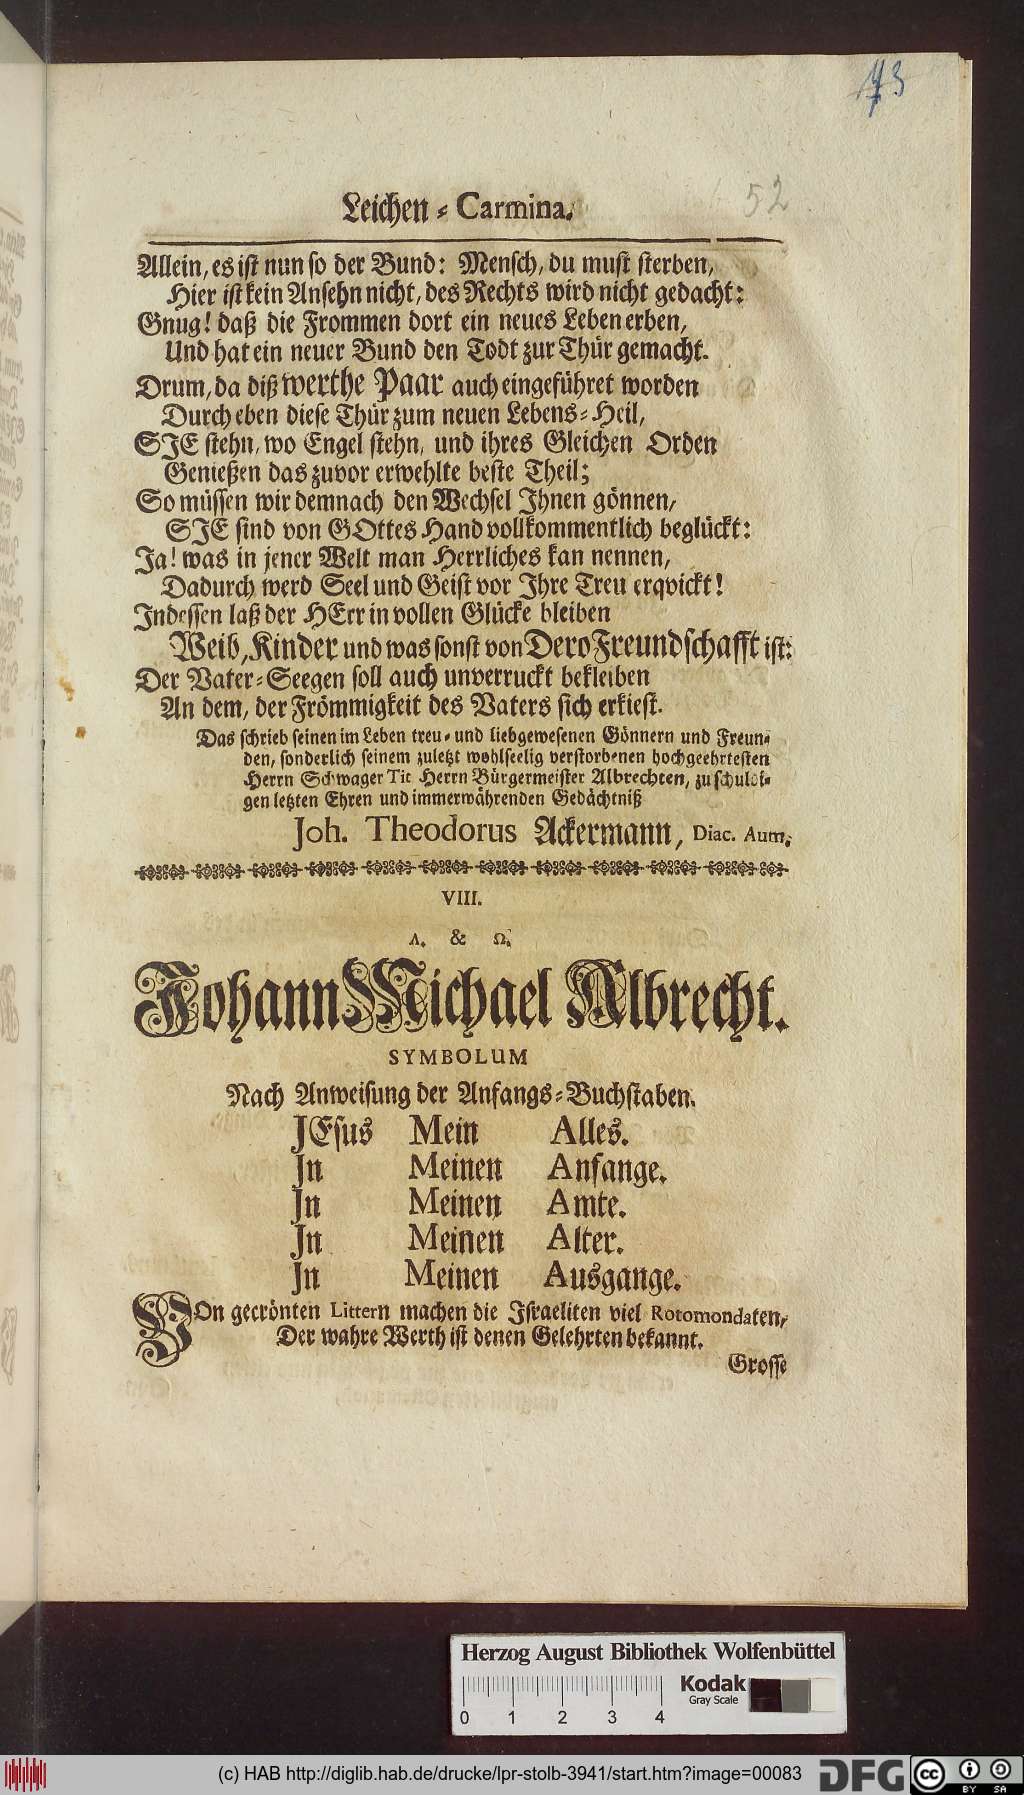 52
Leichen-Carmina.
Allein, es ist nun so der Bund: Mensch, du must sterben,
Hier ist kein Ansehn nicht, des Rechts wird nicht gedacht:
Gnug! daß die Frommen dort ein neues Leben erben,
Und hat ein neuer Bund den Todt zur Thür gemacht.
Drum, da diß werthe Paar auch eingeführet worden
Durch eben diese Thür zum neuen Lebens-Heil,
SIE stehn, wo Engel stehn, und ihres Gleichen Orden
Genießen das zuvor erwehlte beste Theil;
So müssen wir demnach den Wechsel Ihnen gönnen,
SIE sind von GOttes Hand vollkommentlich beglückt:
Ja! was in jener Welt man Herrliches kan nennen,
Dadurch werd Seel und Geist vor Ihre Treu erqvickt!
Indessen laß der HErr in vollen Glücke bleiben
Weib, Kinder und was sonst von Dero Freundschafft ist:
Der Vater-Seegen soll auch unverruckt bekleiben
An dem, der Frömmigkeit des Vaters sich erkiest.
Das schrieb seinen im Leben treu- und liebgewesenen Gönnern und Freun-
den, sonderlich seinem zuletzt wohlseelig verstorbenen hochgeehrtesten
Herrn Schwager Tit Herrn Bürgermeister Albrechten, zu schuldi-
gen letzten Ehren und immerwährenden Gedächtniß
Joh. Theodorus Ackermann, Diac. Aum.
VIII.
A. & Ω.
Johann Michael Albrecht.
SYMBOLUM
Nach Anweisung der Anfangs-Buchstaben.
JEsus Mein Alles.
In Meinen Anfange.
In Meinen Amte.
In Meinen Alter.
In Meinen Ausgange.
VOn gecrönten Littern machen die Israeliten viel Rotomondaten,
Der wahre Werth ist denen Gelehrten bekannt.
Grosse
Herzog August Bibliothek Wolfenbüttel
Kodak
Gray Scale
0 1 2 3 4
(c) HAB http://diglib.hab.de/drucke/lpr-stolb-3941/start.htm?image=00083
DFG
cc BY SA